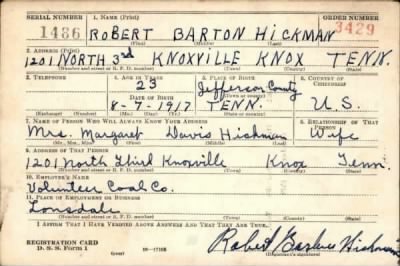 SERIAL NUMBER 1. NAME (Print) ORDER NUMBER
1486 ROBERT BARTON HICKMAN 3429
(First) (Middle) (Last)
2. ADDRESS (Print)
1201 NORTH 3rd KNOXVILLE KNOX TENN.
(Number and street or R. F. D. number) (Town) (County) (State)
3. TELEPHONE 4. AGE IN YEARS 5. PLACE OF BIRTH 6. COUNTRY OF CITIZENSHIP
23 Jefferson County
DATE OF BIRTH (Town or county)
8-7-1917 TENN. U.S.
(Mo.) (Day) (Yr.) (State or country)
7. NAME OF PERSON WHO WILL ALWAYS KNOW YOUR ADDRESS 8. RELATIONSHIP OF THAT PERSON
Mrs. Margaret Davis Hickman Wife
(Mr., Mrs., Miss) (First) (Middle) (Last)
9. ADDRESS OF THAT PERSON
1201 North Third Knoxville Knox Tenn.
(Number and street or R. F. D. number) (Town) (County) (State)
10. EMPLOYER'S NAME
Volunteer Coal Co.
11. PLACE OF EMPLOYMENT OR BUSINESS
Lonsdale
(Number and street or R. F. D. number) (Town) (County) (State)
I AFFIRM THAT I HAVE VERIFIED ABOVE ANSWERS AND THAT THEY ARE TRUE.
REGISTRATION CARD
D. S. S. Form 1 Robert Barton Hickman
(Registrant's signature)